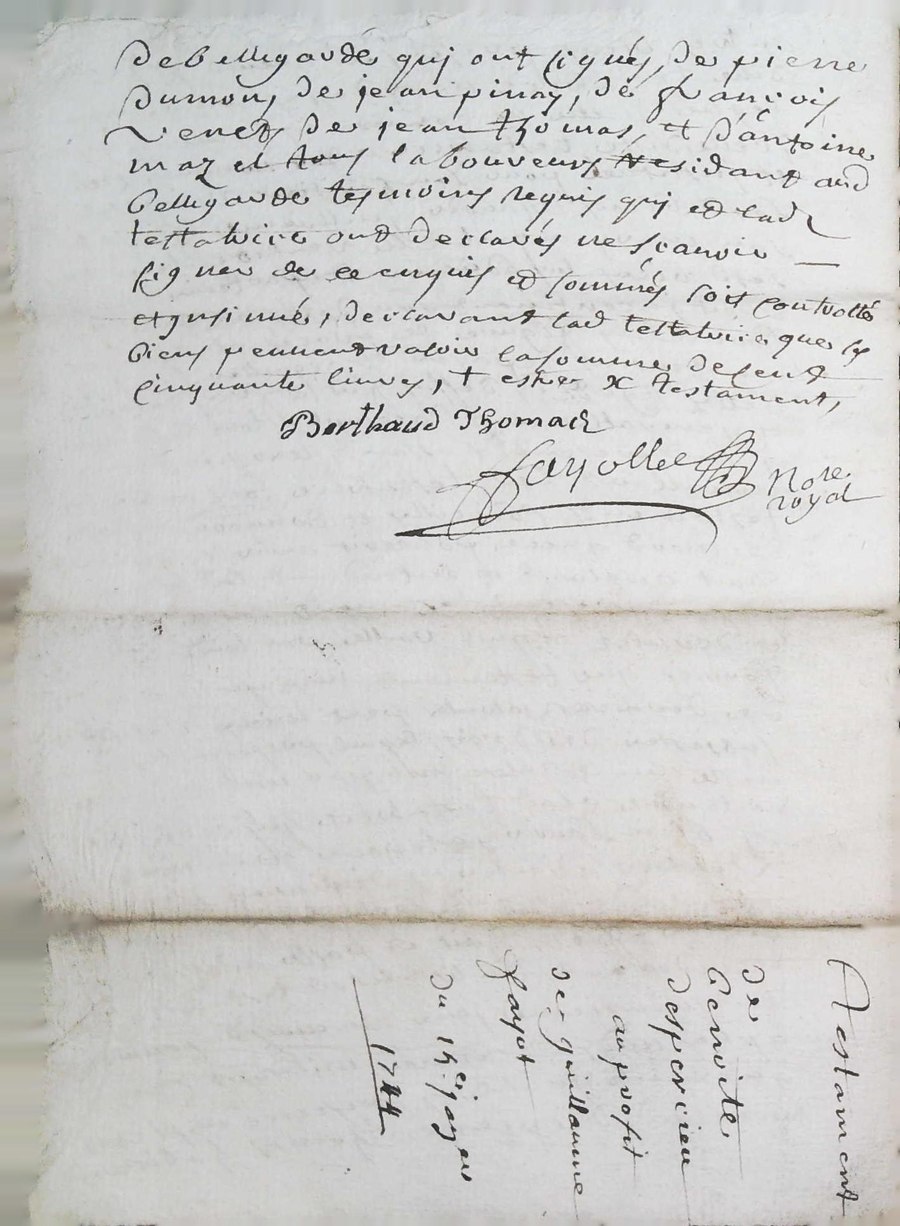 de bellegarde quj ont signés, de pierre
dumon, de jean pinay, de françois
venet, de jean thomas, et d'antoine
maz et tous laboureurs residant aud
bellegarde tesmoins requis quj et lad
testatrice ont declarés ne scavoir
signer de ce enquis et sommés soit controllé
et jnsinué, declarant lad testatrice que ses
biens peuvent valoir la somme de cent
cinquante livres, testament,
Berthaud Thomach
fayolle Nore
royal
Testament
de
benoite
despercieu
au profit
de guillaume
fayot
du 15e
1744